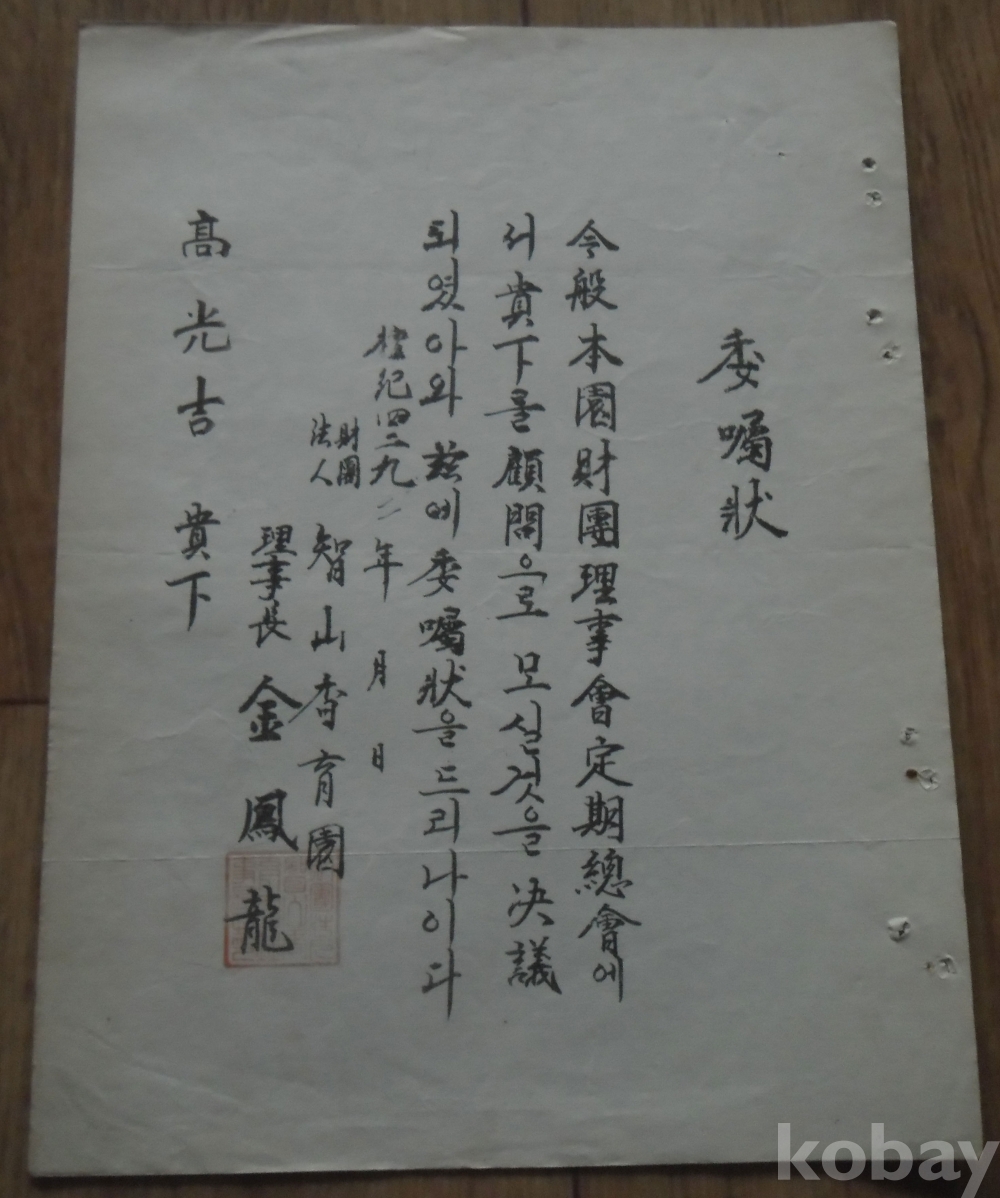 委囑狀
今般本園財團理事會定期總會에
서 貴下를 顧問으로 모실것을 決議
되였아와 玆에 委囑狀을 드리나이다
檀紀四二九二年 月 日
財團法人 智山香育園
理事長 金鳳龍
高光吉 貴下
kobay